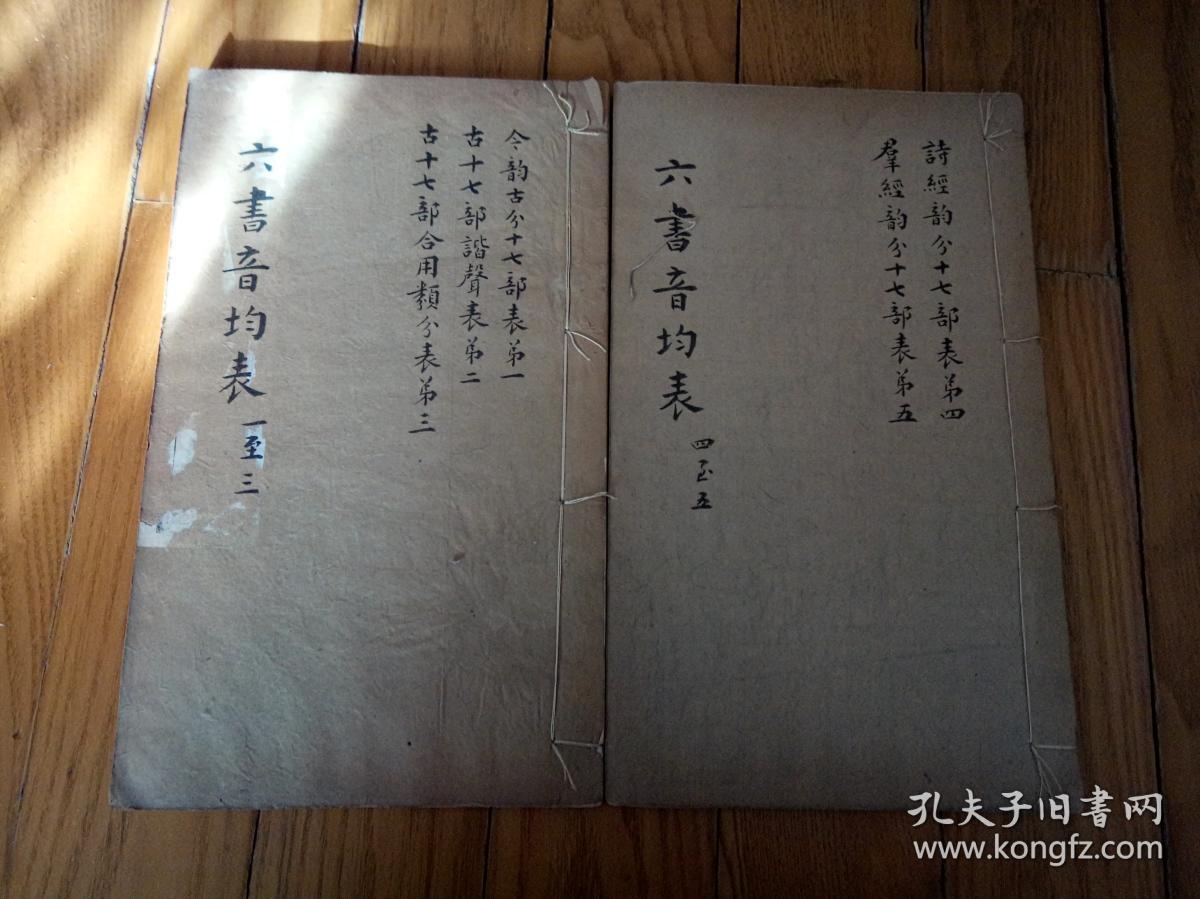 今韵古分十七部表第一
古十七部諧聲表第二
古十七部合用類分表第三
六書音均表
一至三
詩經韵分十七部表第四
羣經韵分十七部表第五
六書音均表
四至五
孔夫子旧書网
www.kongfz.com